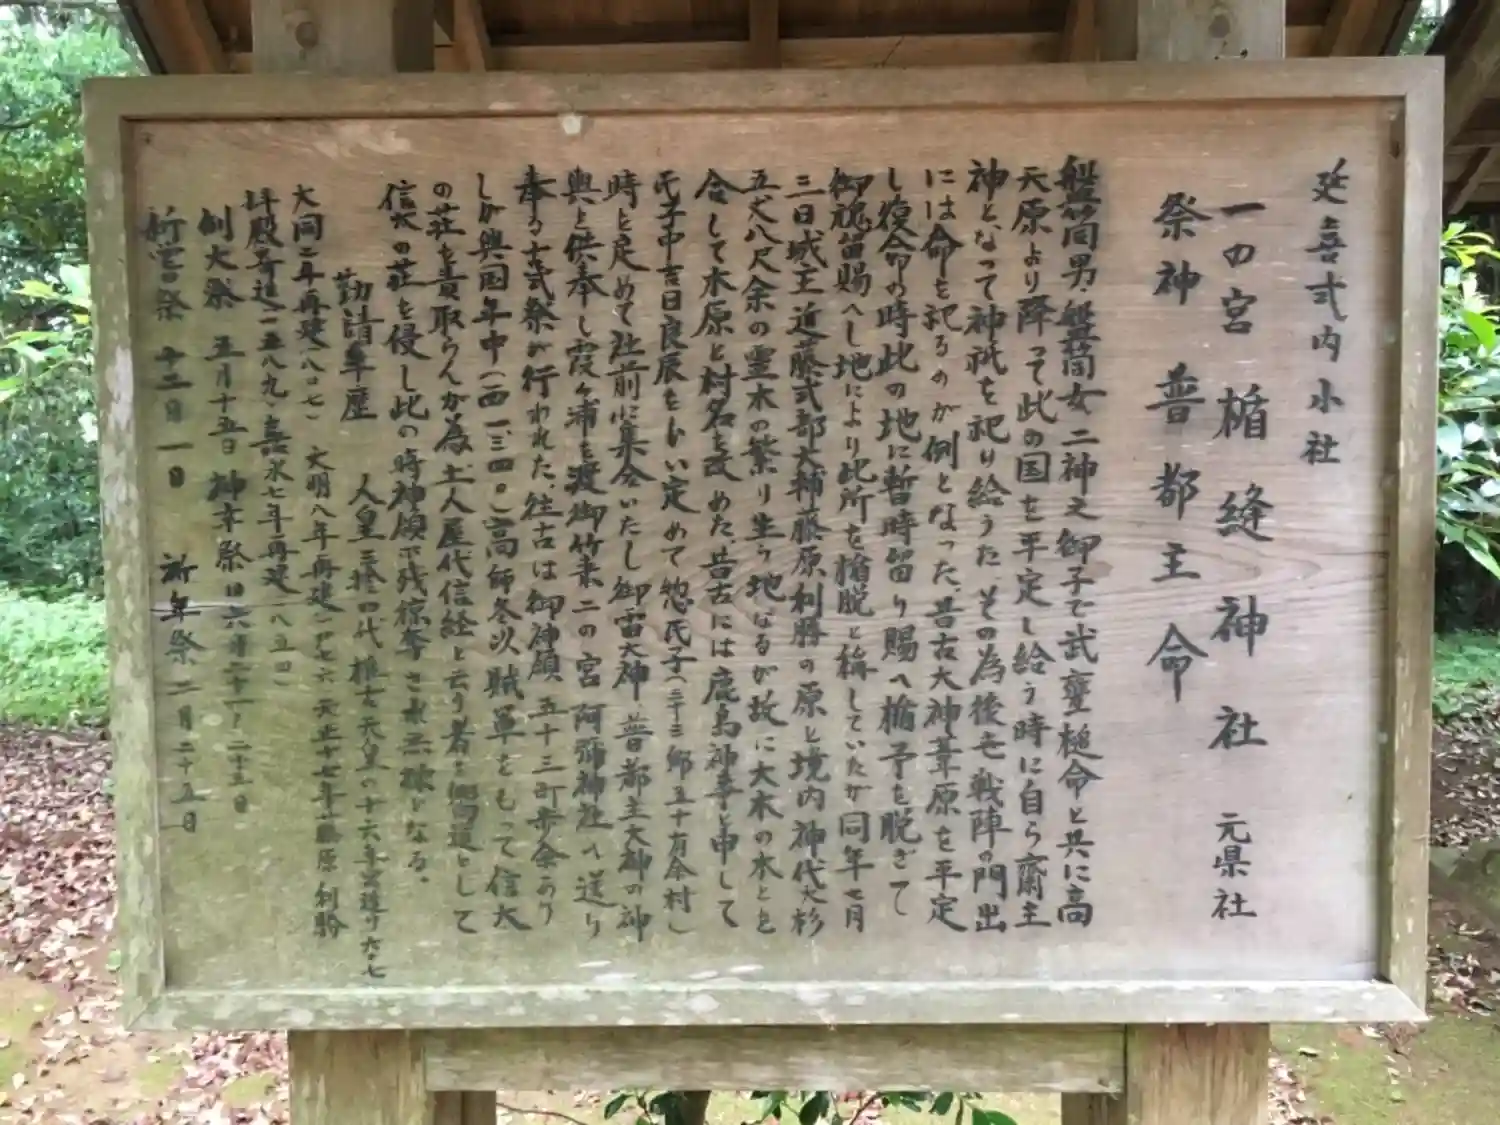 延喜式内小社
一の宮 楯縫神社 元県社
祭神 普都主命
磐筒男、磐筒女二神之御子で武甕槌命と共に高
天原より降って此の国を平定し給う時に自ら齋主
神となって神祇を祀り給うた、その為後世戦陣の門出
には命を祀るのが例となった、昔古大神葦原を平定
し復命の時此の地に暫時留り賜へ楯予を脱ぎて
御魂留賜へし地により此所を楯脱と称していたが同年七月
三日城主近藤式部大輔藤原利勝の原と境内神代大杉
五丈八尺余の霊木の繁り生う地なるが故に大木の木とを
合して木原と村名を改めた、昔古には鹿島神事と申して
氏子中吉日良辰をトい定めて惣氏子(二十三郷五十有余村)
時を定めて社前に集会いたし御雷大神普都主大神の神
輿と供奉し霞ヶ浦を渡御竹来二の宮阿弥神社へ送り
奉る古式祭が行われた、往古は御神領五十三町歩余あり
しが興国年中(一四一三四〇)高師冬以賊軍をもって信太
の荘を責取らんが為、土人屋代信経と云う者を郷道として
信太の荘を侵し此の時神領不残掠奪され無禄となる。
勤請年歴 人皇三拾四代推古天皇の十六年
大同二年再建(八〇七) 文明八年再建 天正十七年藤原利勝
拝殿 嘉永七年再建(一八五四)
例大祭 五月十五日 神幸祭
新嘗祭 十二日一日 祈年祭 二月二十五日